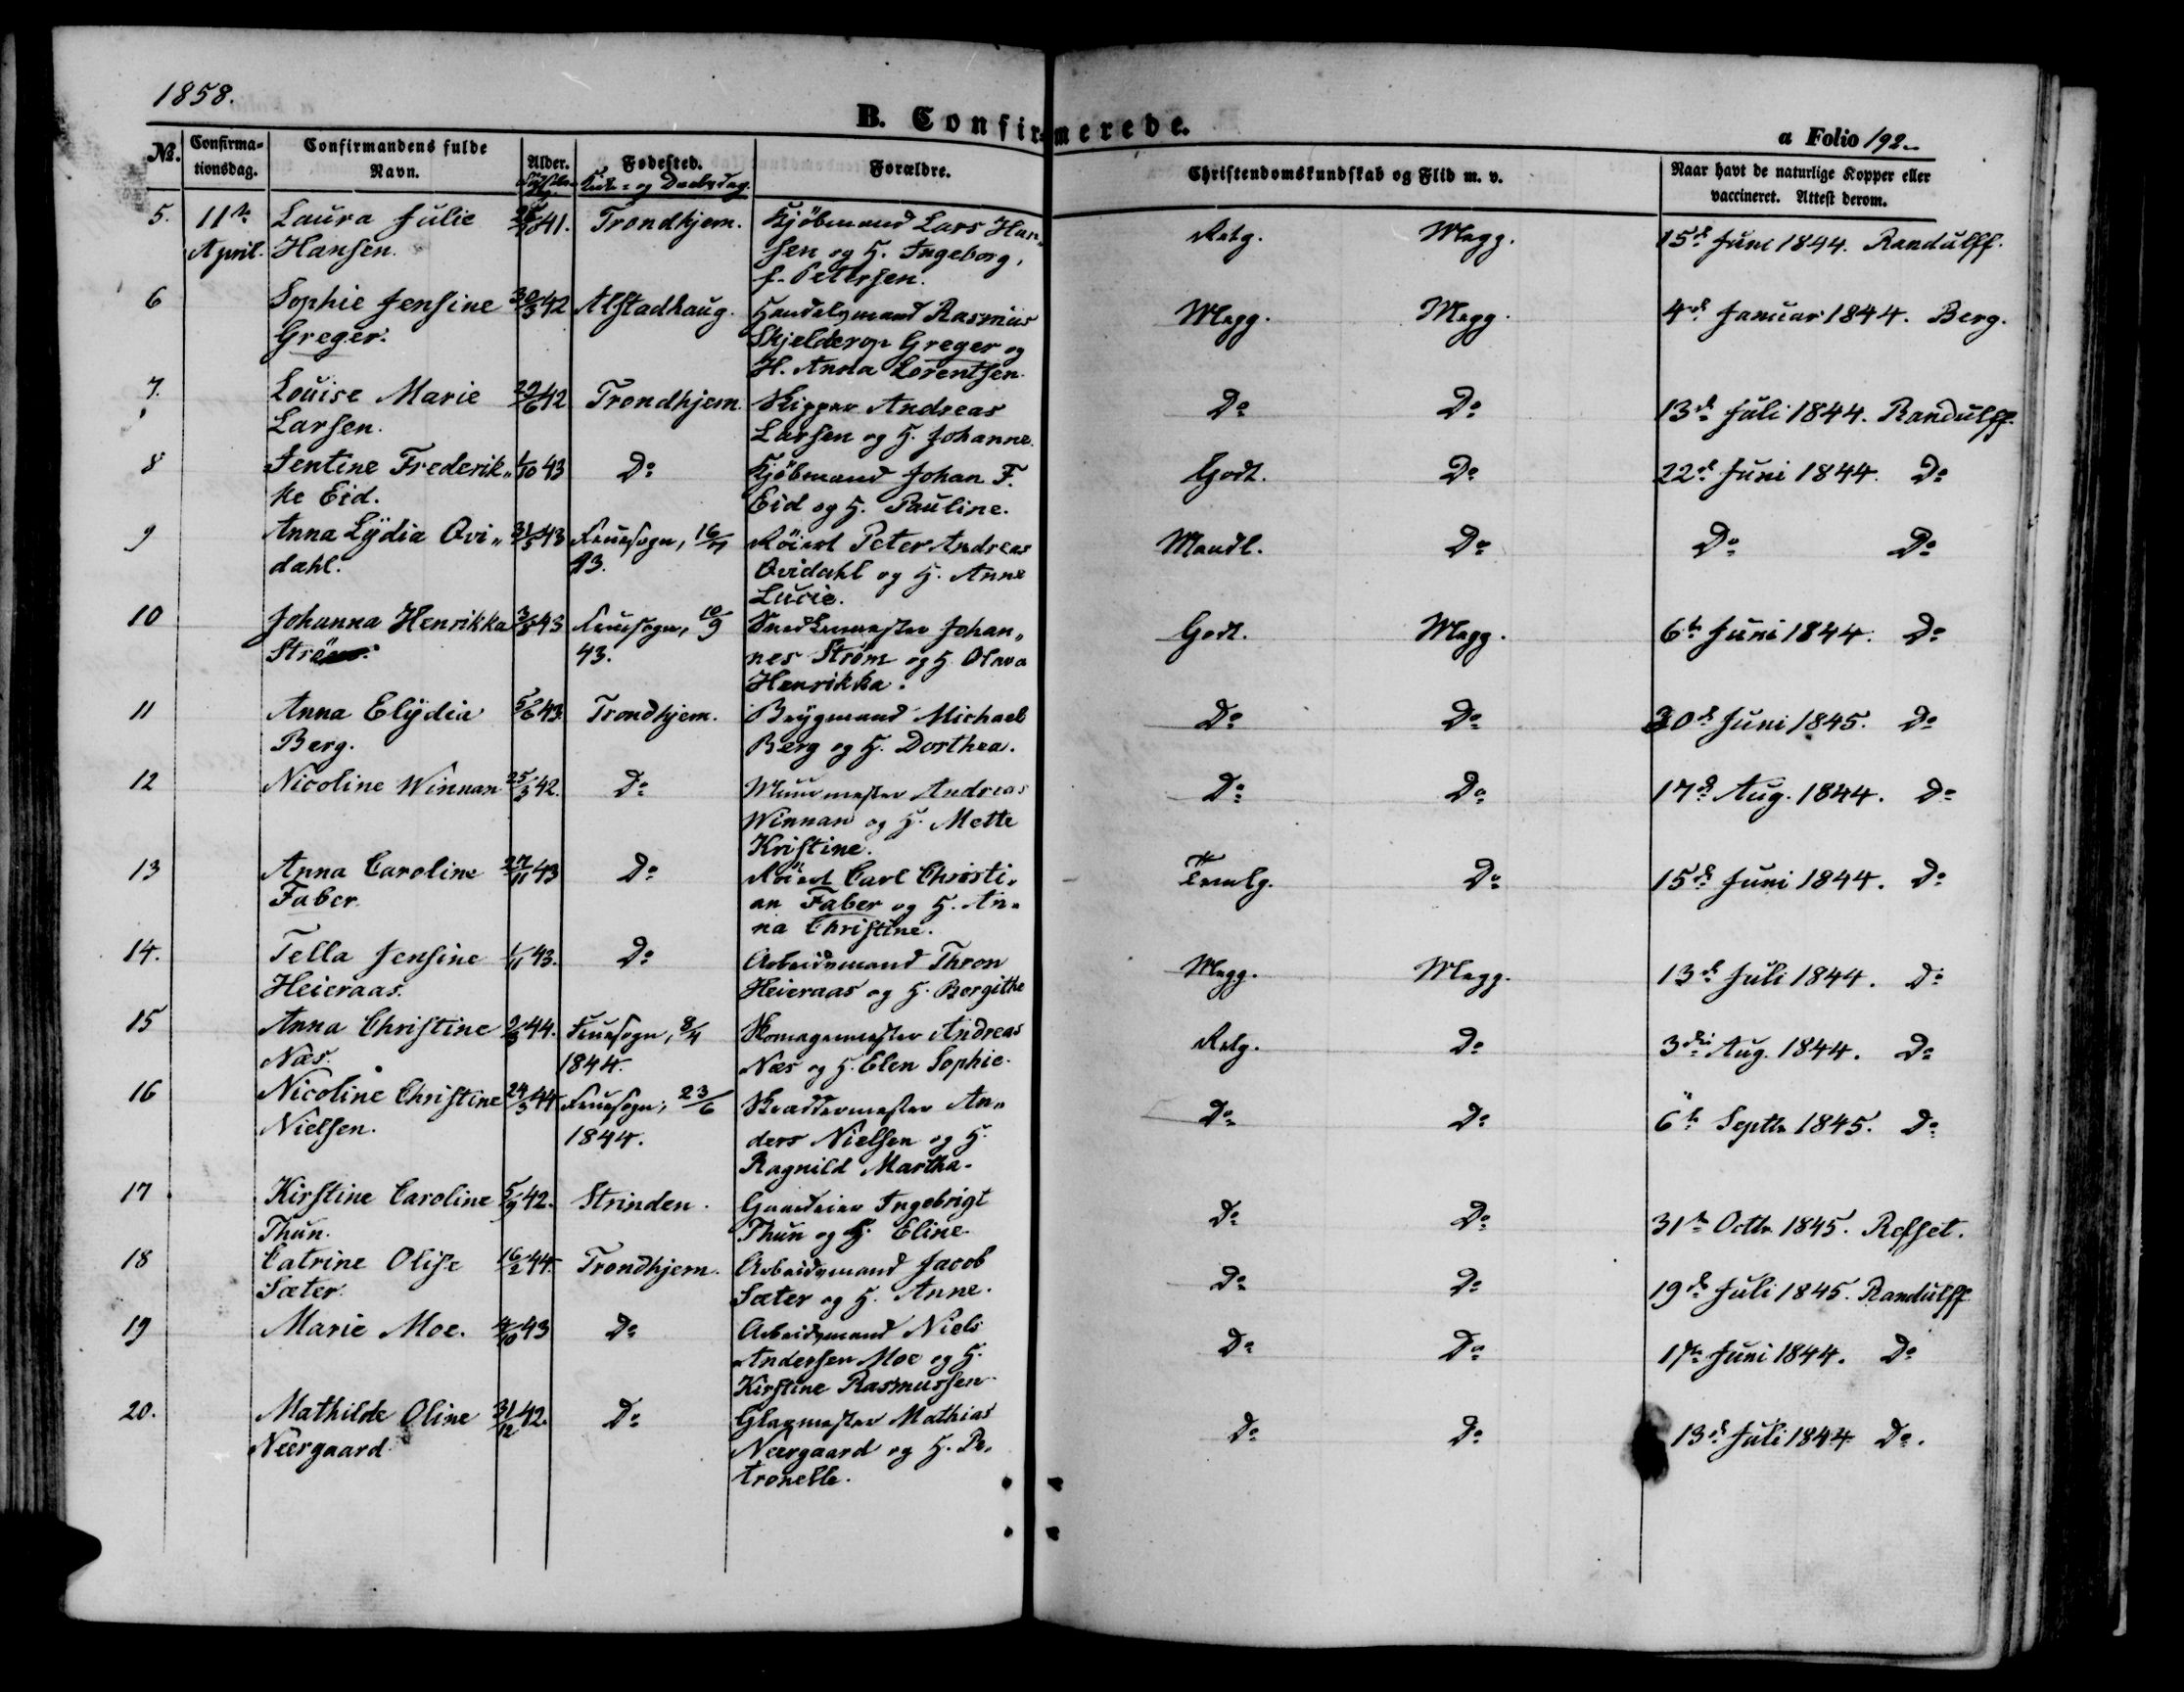 1858.
B. Confirmerede.
a Folio 192.
No. Confirmationsdag. Confirmandens fulde Navn. Alder. Fødested. Kirke- og Daabsdag. Forældre. Christendomskundskab og Flid m. v. Naar havt de naturlige Kopper eller vaccineret. Attest derom.
5. 11te Laura Julie 41. Trondhjem. Kjöbmand Lars Han- Relg. Megg. 15de Juni 1844. Randulff.
April. Hansen. sen og H. Ingeborg,
f. Petersen.
6 Sophie Jensine 30/3 42 Alstadhaug. Handelsmand Rasmus Megg. Megg. 4de Januar 1844. Berg.
Greger. Skjelderop Greger og
H. Anna Lorentsen.
7. Louise Marie 29/6 42 Trondhjem. Skipper Andreas Do Do 13de Juli 1844. Randulff.
Larsen. Larsen og H. Johanne.
8 Jentine Frederik- 1/10 43 Do Kjöbmand Johan F. Godt. Do 22de Juni 1844. Do
ke Eid. Eid og H. Pauline.
9 Anna Lydia Qvi- 31/5 43 Fruesogn, 16/7 Röiert Peter Andreas Maadl. Do Do Do
dahl. 43. Qvidahl og H. Anne
Lucie.
10 Johanna Henrikka 3/8 43 Fruesogn, 10/9 Snedkermester Johan- Godt. Megg. 6te Juni 1844. Do
Ström. 43. nes Strøm og H. Olava
Henrikka.
11 Anna Elydia 5/6 43. Trondhjem. Brygmand Michael Do Do 30de Juni 1845. Do
Berg. Berg og H. Dorthea.
12 Nicoline Winnan 25/3 42. Do Muurmester Andreas Do Do 17de Aug. 1844. Do
Winnan og H. Mette
Kristine.
13 Anna Caroline 27/11 43 Do Röiert Carl Christi- Temlg. Do 15de Juni 1844. Do
Faber. an Faber og H. An-
na Christine.
14. Tella Jensine 1/11 43. Do Arbeidsmand Thron Megg. Megg. 13de Juli 1844. Do
Heieraas. Heieraas og H. Bergithe
15 Anna Christine 2/3 44. Fruesogn, 8/4 Skomagermester Andreas Relg. Do 3die Aug. 1844. Do
Næs. 1844. Næs og H. Elen Sophie.
16 Nicoline Christine 24/3 44 Fruesogn, 23/6 Skræddermester An- Do Do 6te Septbr 1845. Do
Nielsen. 1844. ders Nielsen og H.
Ragnild Martha.
17. Kirstine Caroline 5/9 42. Strinden. Gaardeier Ingebrigt Do Do 31te Octbr 1845. Refset.
Thun. Thun og H. Eline.
18 Catrine Olise 16/2 44. Trondhjem. Arbeidsmand Jacob Do Do 19de Juli 1845. Randulff
Sæter. Sæter og H. Anne.
19 Marie Moe. 4/10 43 Do Arbeidsmand Niels Do Do Juni 1844. Do
Andersen Moe og H.
Kirstine Rasmussen.
20. Mathilde Oline 31/12 42. Do Glasmester Mathias Do Do 13de Juli 1844 Do.
Neergaard. Neergaard og H. Pe-
tronelle.